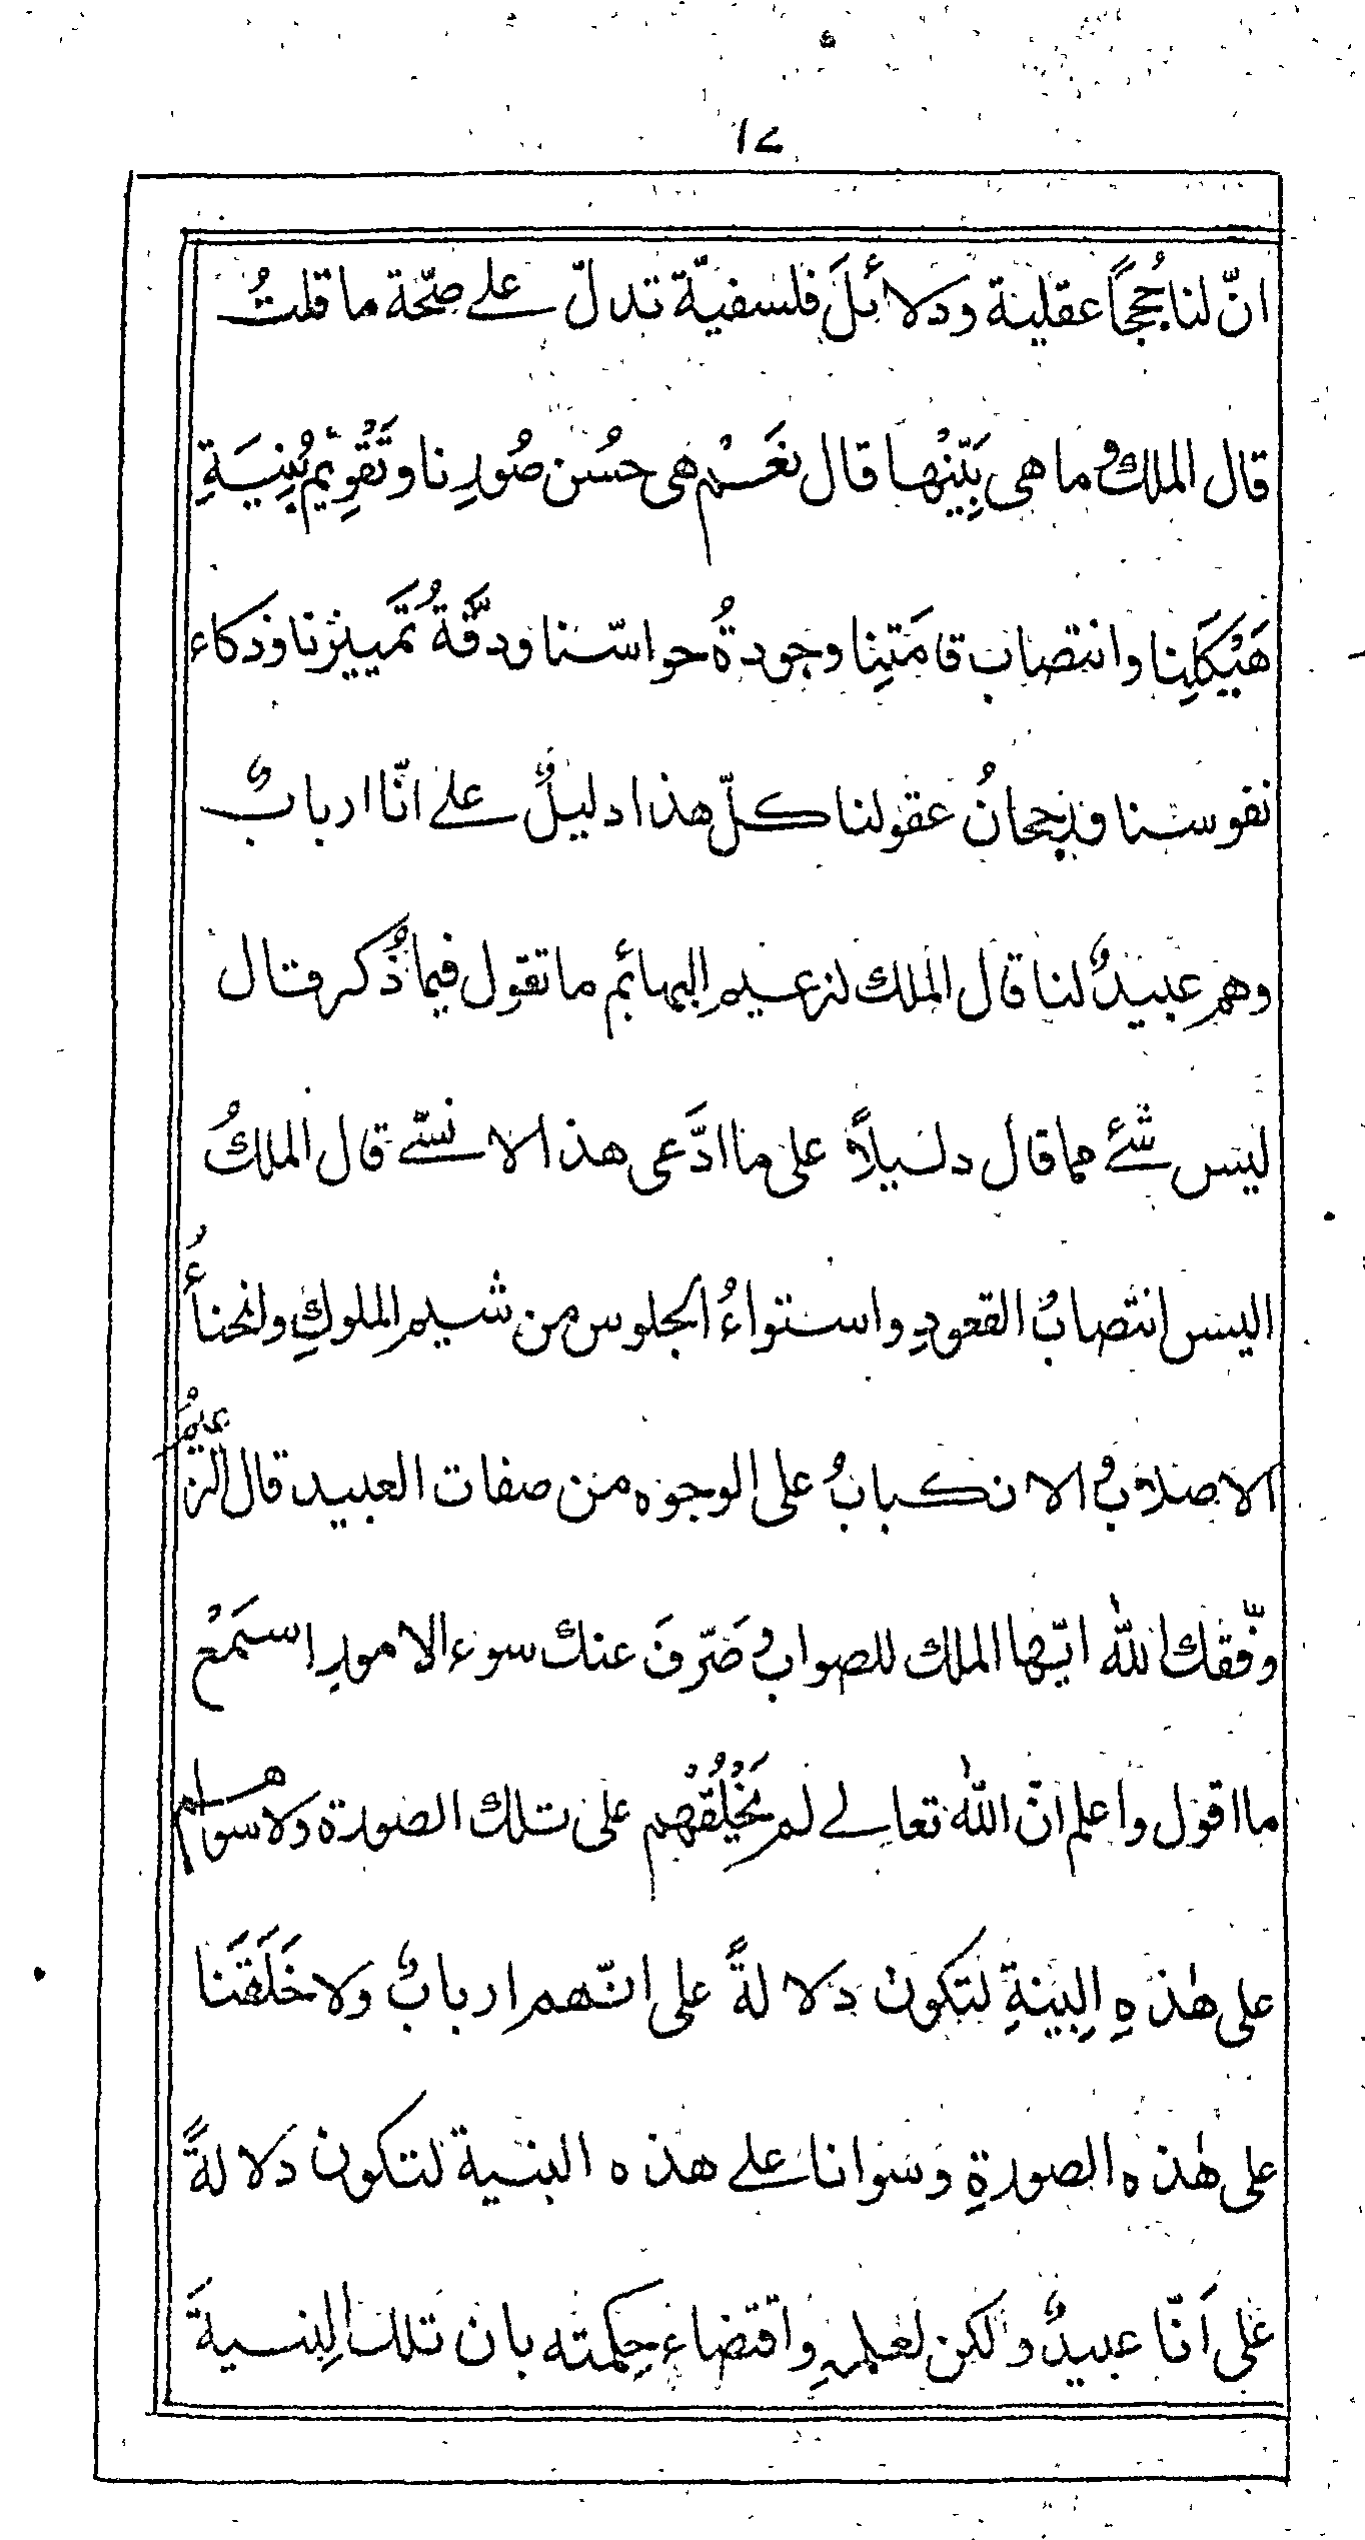 ١٧
انّ لنا حُججاً عقلية ودلائلَ فلسفيّة تدلّ علے صحّة ما قلتُ
قال الملكُ ما هى بَيِّنْها قال نعَمْ هى حُسْن صُورِنا وتَقْوِيْمُ بُنِيَةِ
هَيْكَلِنا وانتصاب قامَتِنا وجودةُ حواسّنا ودقَّةُ تمَييزنا وذكاء
نفوسنا ورجحانُ عقولنا كلّ هذا دليلٌ علے انّا اربابٌ
وهم عبيدٌ لنا قال الملك لزعيم البهائم ما تقول فيما ذُكر قال
ليس شئے مما قال دليلاً على ما ادَّعى هذا الانسّے قال الملكُ
اليس انتصابُ القعودِ واستواءُ الجلوس من شيم الملوكِ وانحناءُ
الاصلابِ والانكبابُ على الوجوه من صفات العبيد قال الزعيمُ
وفّقك الله ايّها الملك للصواب وصَرّفَ عنك سوء الامورِ استمَعْ
ما اقول واعلم انّ اللهَ تعالے لم يَخْلُقْهم على تلك الصورة ولا سواهم
على هٰذهِ البِنيةِ لتكون دلالةً على انّهم اربابٌ ولا خَلَقَنا
على هٰذه الصورةِ وسوانا علے هذه البنية لتكون دلالةً
على اَنّا عبيدٌ ولكن لعلمهِ واقتضاء حِكمته بان تلك البِنيةَ